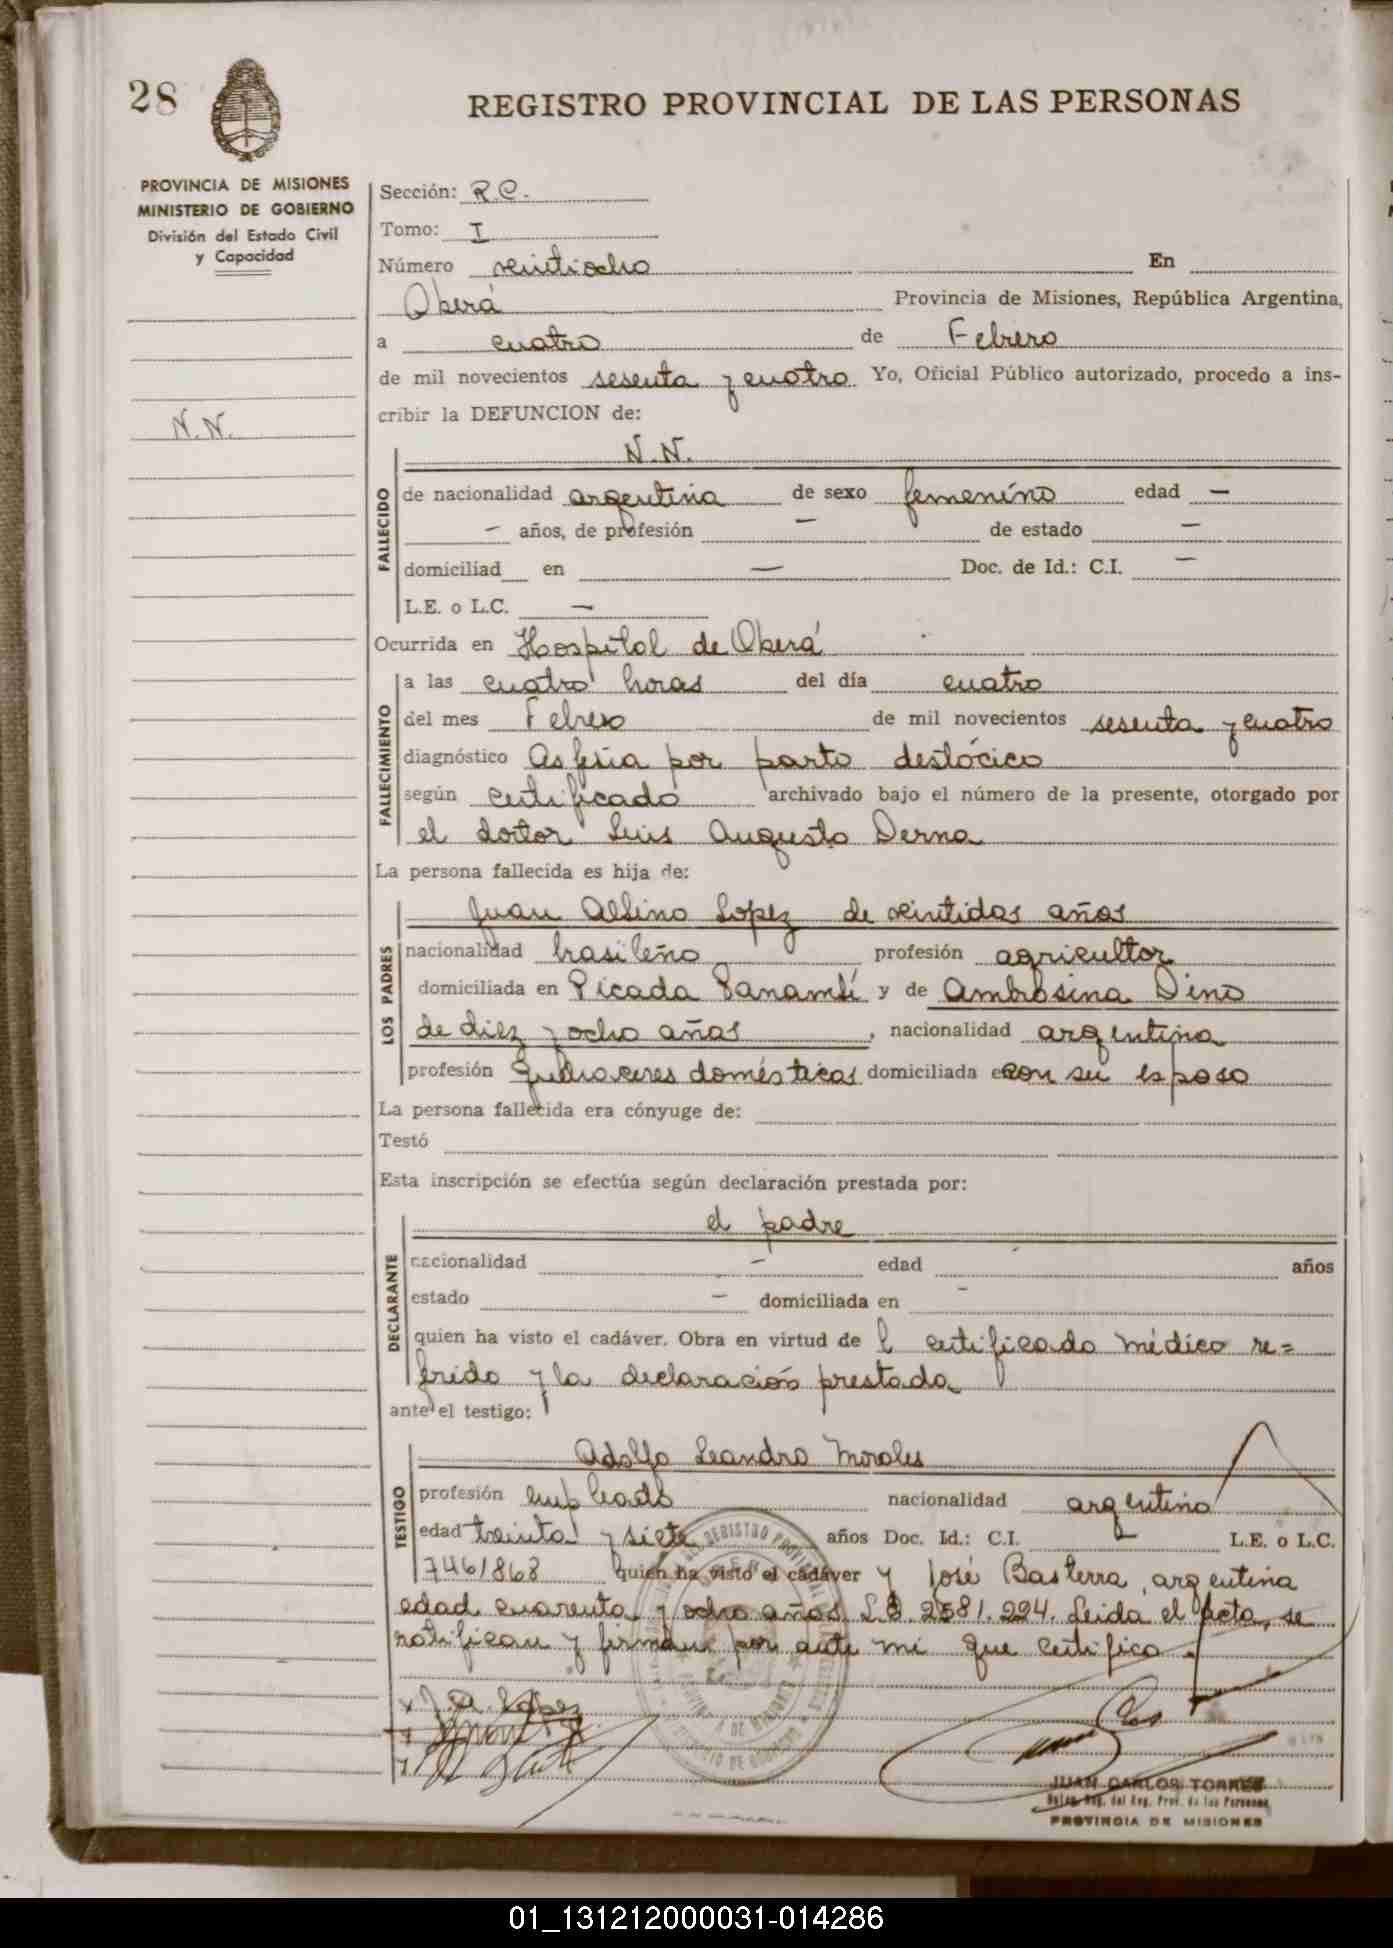 28
REGISTRO PROVINCIAL DE LAS PERSONAS
PROVINCIA DE MISIONES
MINISTERIO DE GOBIERNO
División del Estado Civil
y Capacidad
N.N.
Sección: R.C.
Tomo: I
Número veintiocho En
Oberá Provincia de Misiones, República Argentina,
a cuatro de Febrero
de mil novecientos sesenta y cuatro Yo, Oficial Público autorizado, procedo a ins-
cribir la DEFUNCION de:
N.N.
FALLECIDO
de nacionalidad argentina de sexo femenino edad —
— años, de profesión — de estado —
domiciliad__ en — Doc. de Id.: C.I. —
L.E. o L.C. —
Ocurrida en Hospital de Oberá
FALLECIMIENTO
a las cuatro horas del día cuatro
del mes Febrero de mil novecientos sesenta y cuatro
diagnóstico Asfixia por parto destócico
según certificado archivado bajo el número de la presente, otorgado por
el doctor Luis Augusto Derna
La persona fallecida es hija de:
LOS PADRES
Juan Albino Lopez de veintidos años
nacionalidad brasileño profesión agricultor
domiciliada en Picada Panambí y de Ambrosina Dino
de diez y ocho años, nacionalidad argentina
profesión Quehaceres domésticas domiciliada en con su esposo
La persona fallecida era cónyuge de:
Testó
Esta inscripción se efectúa según declaración prestada por:
DECLARANTE
el padre
nacionalidad — edad años
estado — domiciliada en —
quien ha visto el cadáver. Obra en virtud de l certificado médico re=
frido y la declaración prestada
ante el testigo:
TESTIGO
Adolfo Leandro Morales
profesión empleado nacionalidad argentino
edad treinta y siete años Doc. Id.: C.I. L.E. o L.C.
7461868 quien ha visto el cadáver y José Basterra, argentina
edad cuarenta y ocho años L.E. 2581.224. Leida el acta, se
notifican y firman por ante mi que certifico.
x J.A. Lopez
JUAN CARLOS TORRES
del Reg. Prov. de las Personas
PROVINCIA DE MISIONES
01_131212000031-014286